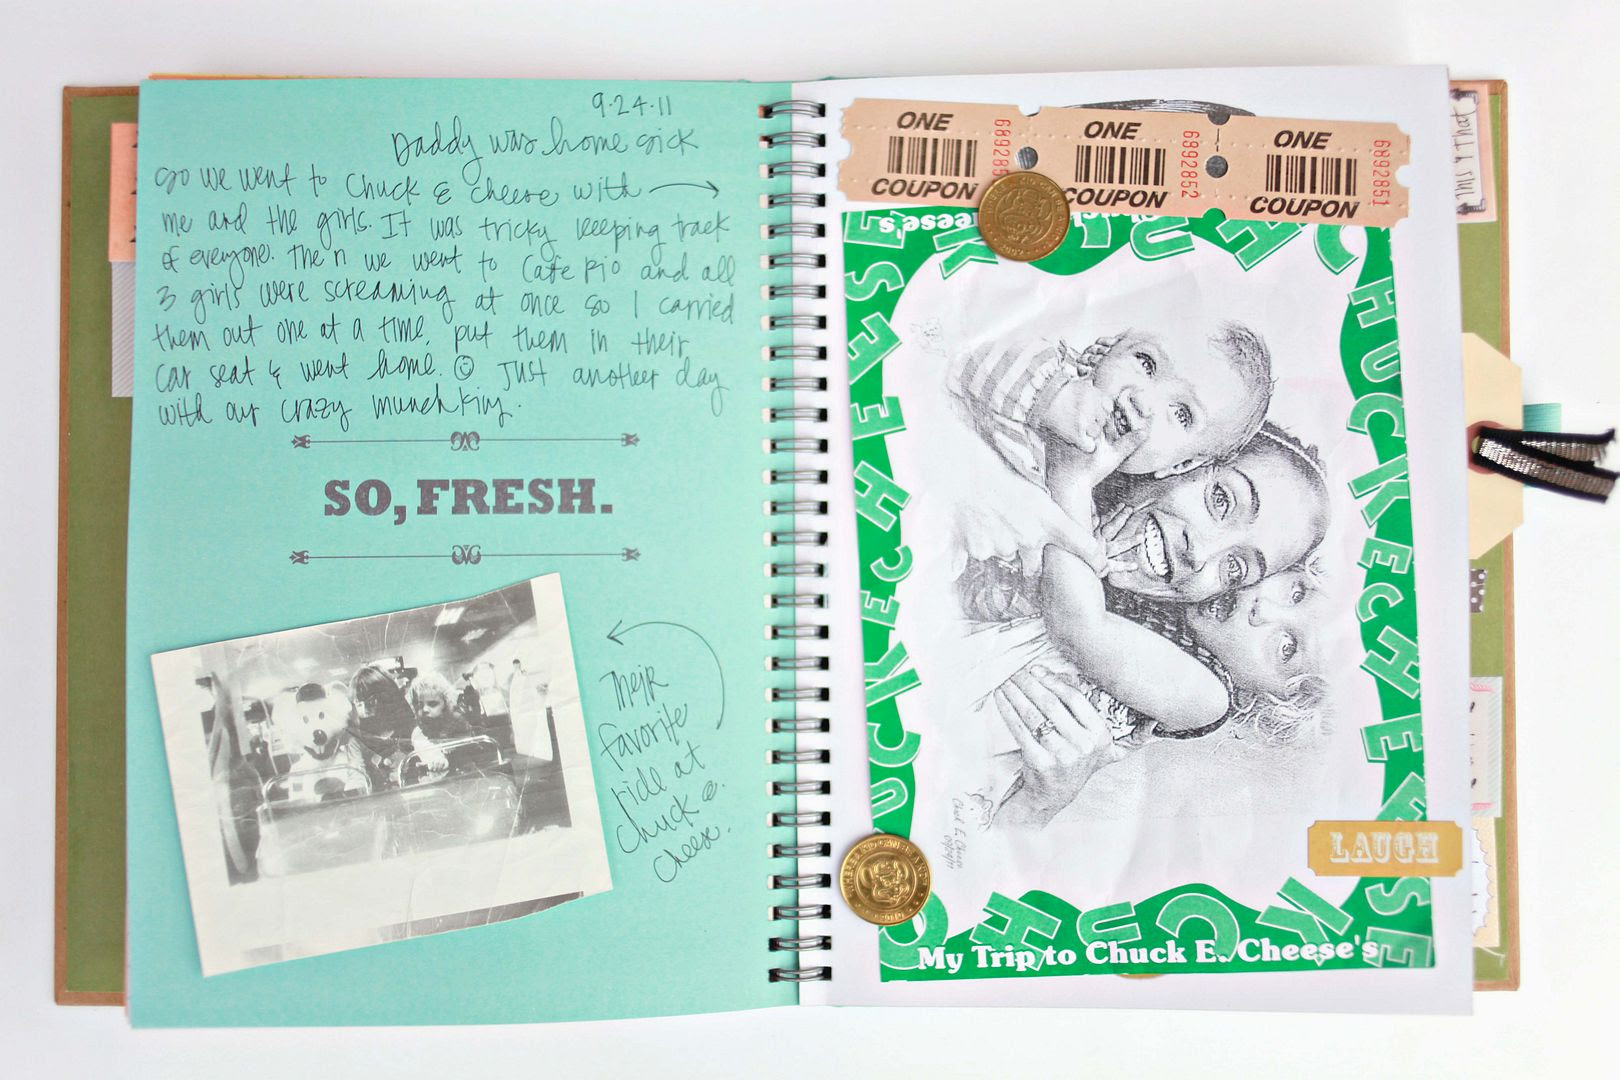 9.24.11
Daddy was home sick
so we went to Chuck E Cheese with
me and the girls. It was tricky keeping track
of everyone. Then we went to Cafe Rio and all
3 girls were screaming at once so I carried
them out one at a time, put them in their
car seat & went home. ☺ Just another day
with our crazy munchkins.
SO, FRESH.
Their
favorite
ride at
Chuck e.
Cheese.
ONE COUPON 689285
ONE COUPON 6892852
ONE COUPON 6892851
CHUCK E CHEESE
CHUCK E CHEESE
CHUCK E CHEESE
Chuck E. Cheese
09/24/11
My Trip to Chuck E. Cheese's
LAUGH
2010
this & that